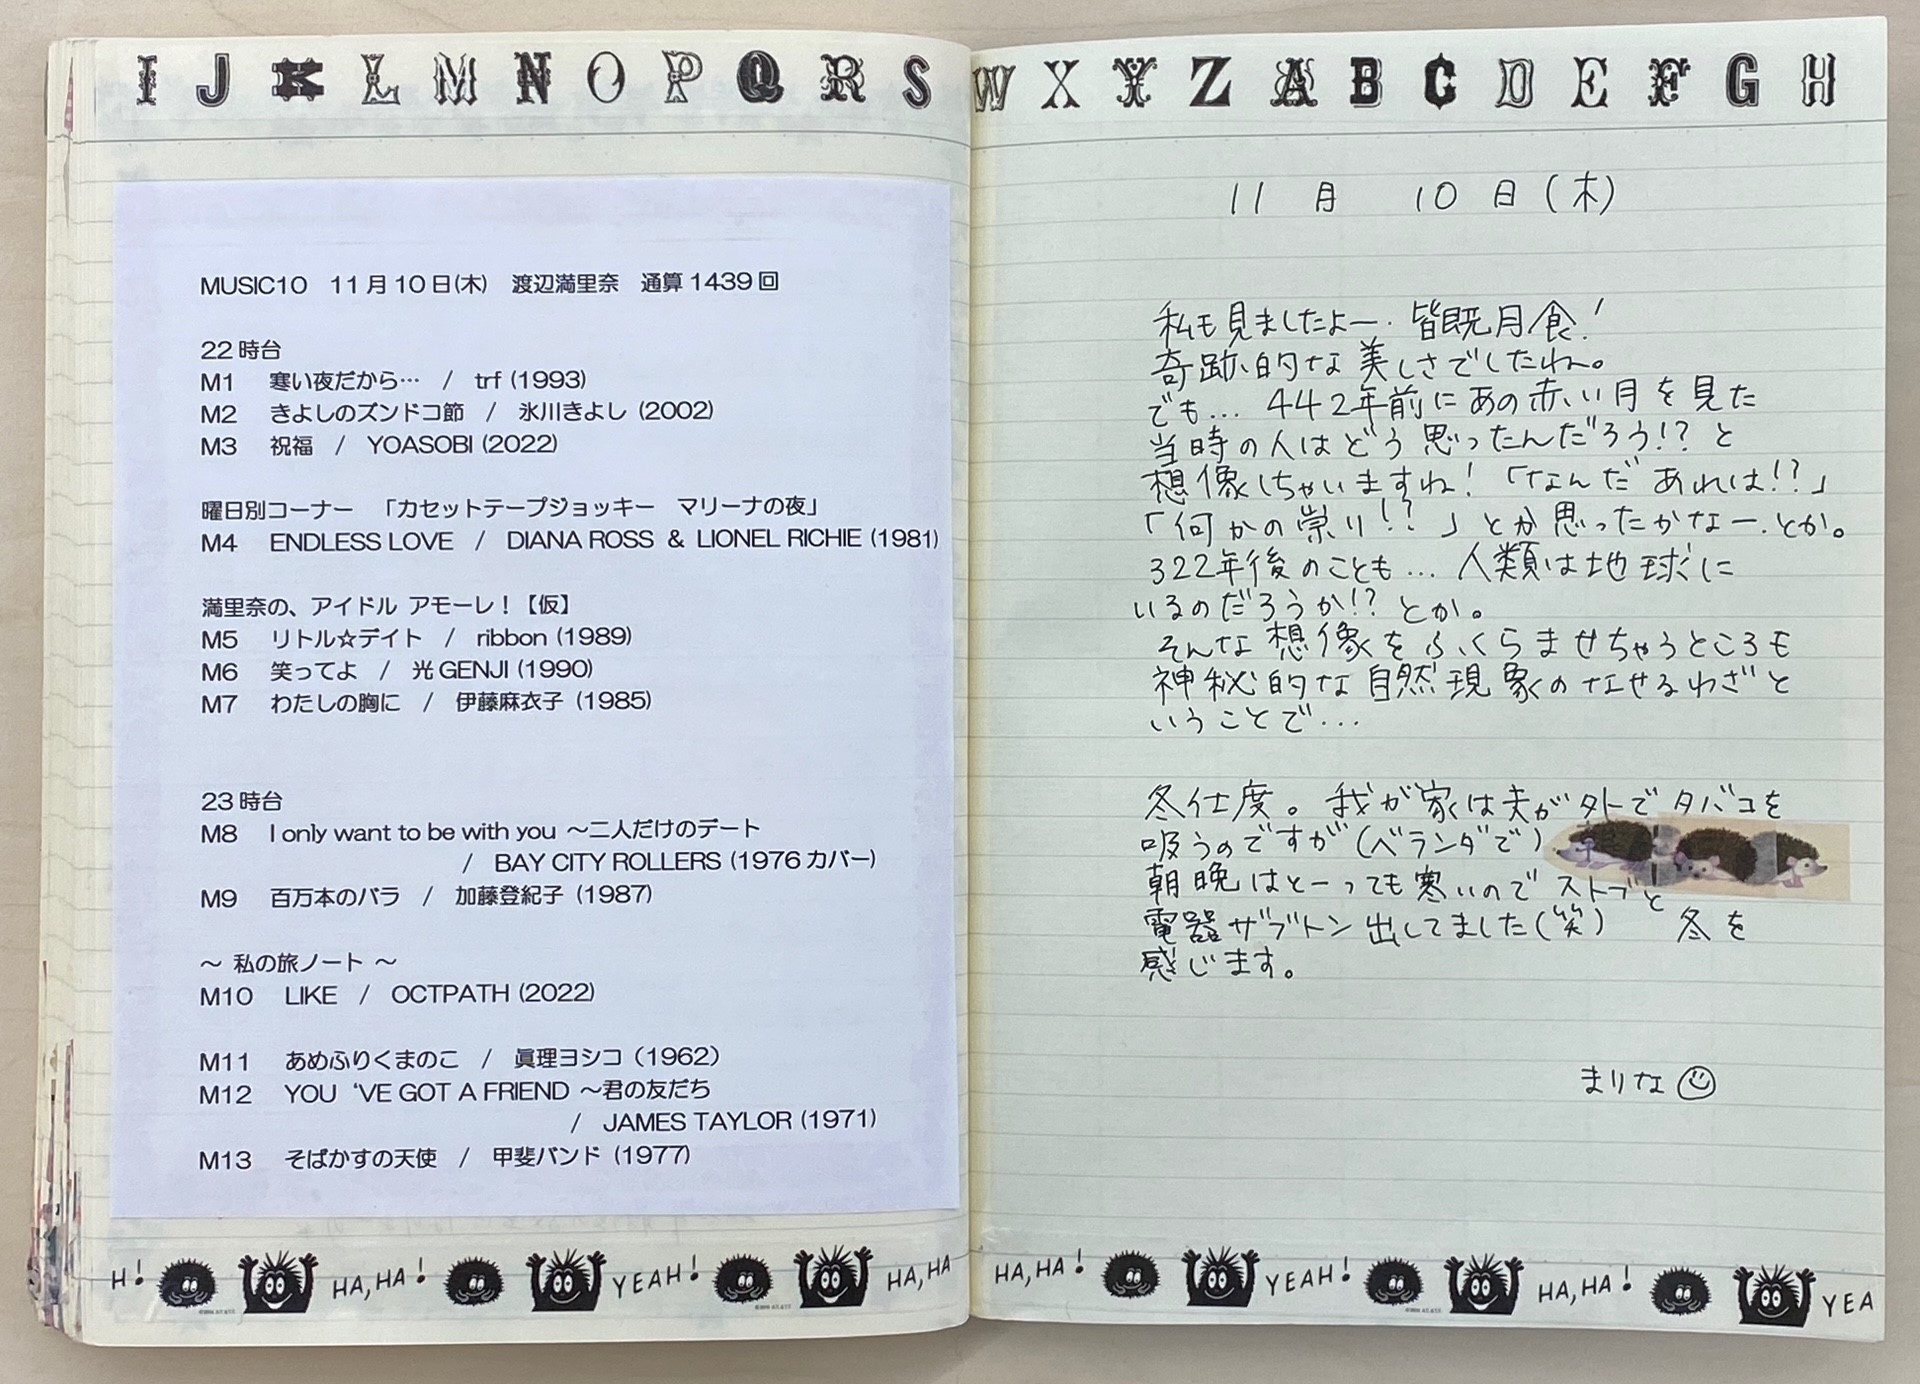 I J K L M N O P Q R S
MUSIC10　11月10日(木)　渡辺満里奈　通算1439回
22時台
M1　寒い夜だから…　/　trf (1993)
M2　きよしのズンドコ節　/　氷川きよし (2002)
M3　祝福　/　YOASOBI (2022)
曜日別コーナー　「カセットテープジョッキー　マリーナの夜」
M4　ENDLESS LOVE　/　DIANA ROSS ＆ LIONEL RICHIE (1981)
満里奈の、アイドル アモーレ！【仮】
M5　リトル☆デイト　/　ribbon (1989)
M6　笑ってよ　/　光GENJI (1990)
M7　わたしの胸に　/　伊藤麻衣子 (1985)
23時台
M8　I only want to be with you ～二人だけのデート
/　BAY CITY ROLLERS (1976カバー)
M9　百万本のバラ　/　加藤登紀子 (1987)
～ 私の旅ノート ～
M10　LIKE　/　OCTPATH (2022)
M11　あめふりくまのこ　/　眞理ヨシコ（1962）
M12　YOU ‘VE GOT A FRIEND ～君の友だち
/　JAMES TAYLOR (1971)
M13　そばかすの天使　/　甲斐バンド (1977)
H! HA, HA! YEAH! HA, HA
W X Y Z A B C D E F G H
11月　10日(木)
私も見ましたよー.皆既月食!
奇跡的な美しさでしたね。
でも… 442年前にあの赤い月を見た
当時の人はどう思ったんだろう!?と
想像しちゃいますね!「なんだあれは!?」
「何かの祟り!?」とか思ったかなー.とか。
322年後のことも… 人類は地球に
いるのだろうか!?とか。
そんな想像をふくらませちゃうところも
神秘的な自然現象のなせるわざと
いうことで…
冬仕度。我が家は夫が外でタバコを
吸うのですが(ベランダで)
朝晩はとーっても寒いのでストーブと
電器ザブトン出してました(笑)　冬を
感じます。
まりな☺
HA, HA! YEAH! HA, HA! YEA